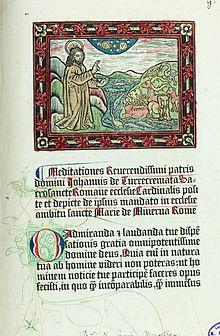 Meditationes Reuerendissimi patris
domini Johannis de Turrecremata Sa-
crosancte Romane ecclesie Cardinalis posi-
te et depicte de ipsius mandato in ecclesie
ambitu sancte Marie de Minerua Rome
Admiranda et laudanda tue dispē-
sationis gratia omnipotentissime
domine deus. Quia cū in natura
tua ab homine videri non poteras: ut ho-
minem noticie tue participē faceres opus
fecisti, in quo ꝙ̄ incōparabilis, ꝙ̄ immēsus